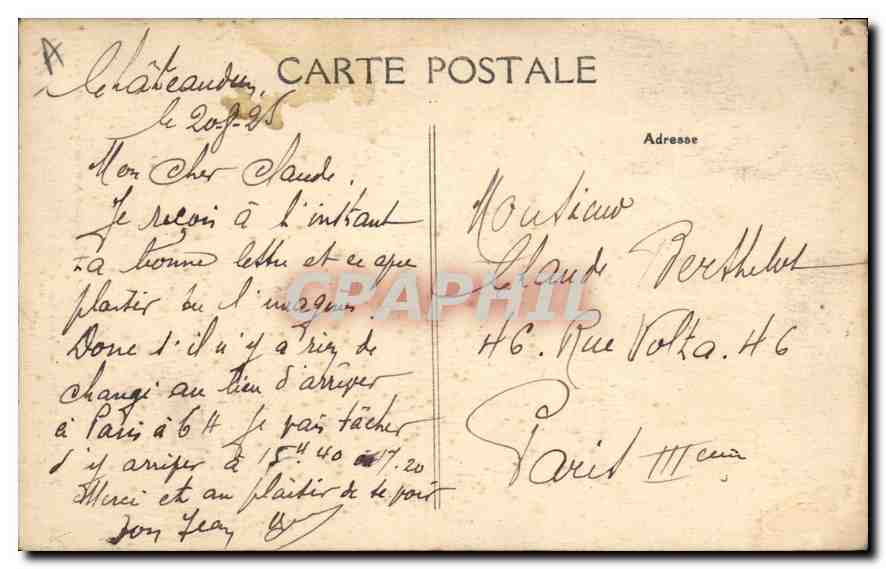 A
CARTE POSTALE
Châteaudun,
le 20-8-25
Adresse
Mon cher Claude.
Je reçois à l'instant
ta bonne lettre et ce que
plaisir tu l'imagines.
Donc s'il n'y a rien de
changé au lieu d'arriver
à Paris à 6 H je vais tâcher
d'y arriver à 15H40 17.20
Merci et au plaisir de te voir
Ton Jean
Monsieur
Claude Berthelot
46. Rue Volta. 46
Paris IIIème
CPAPHIL